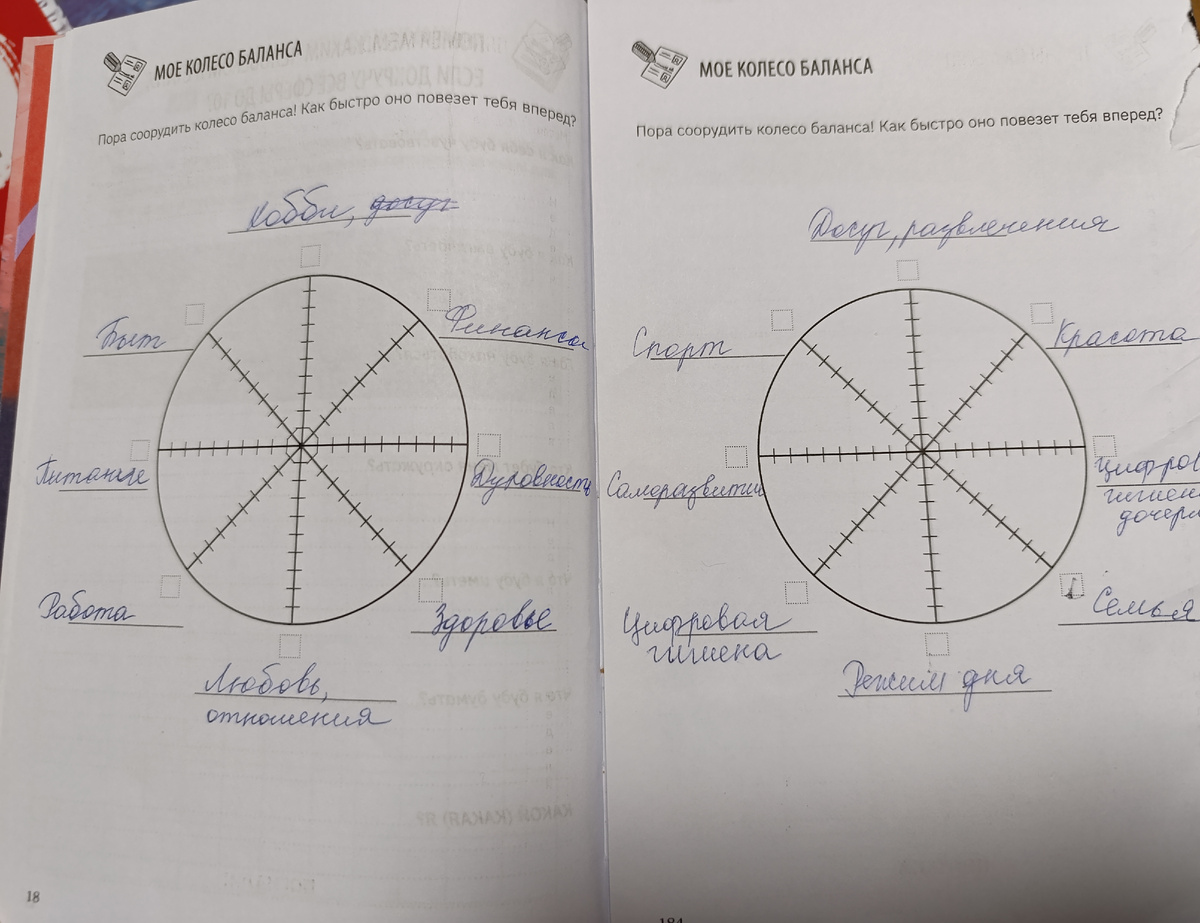 МОЕ КОЛЕСО БАЛАНСА
Пора соорудить колесо баланса! Как быстро оно повезет тебя вперед?
Хобби, досуг
Быт
Финансы
Питание
Духовность
Работа
Здоровье
Любовь,
отношения
18
МОЕ КОЛЕСО БАЛАНСА
Пора соорудить колесо баланса! Как быстро оно повезет тебя вперед?
Досуг, развлечения
Спорт
Красота
Саморазвитие
Цифров
гигиен
дочери
Цифровая
гигиена
Семья
Режим дня